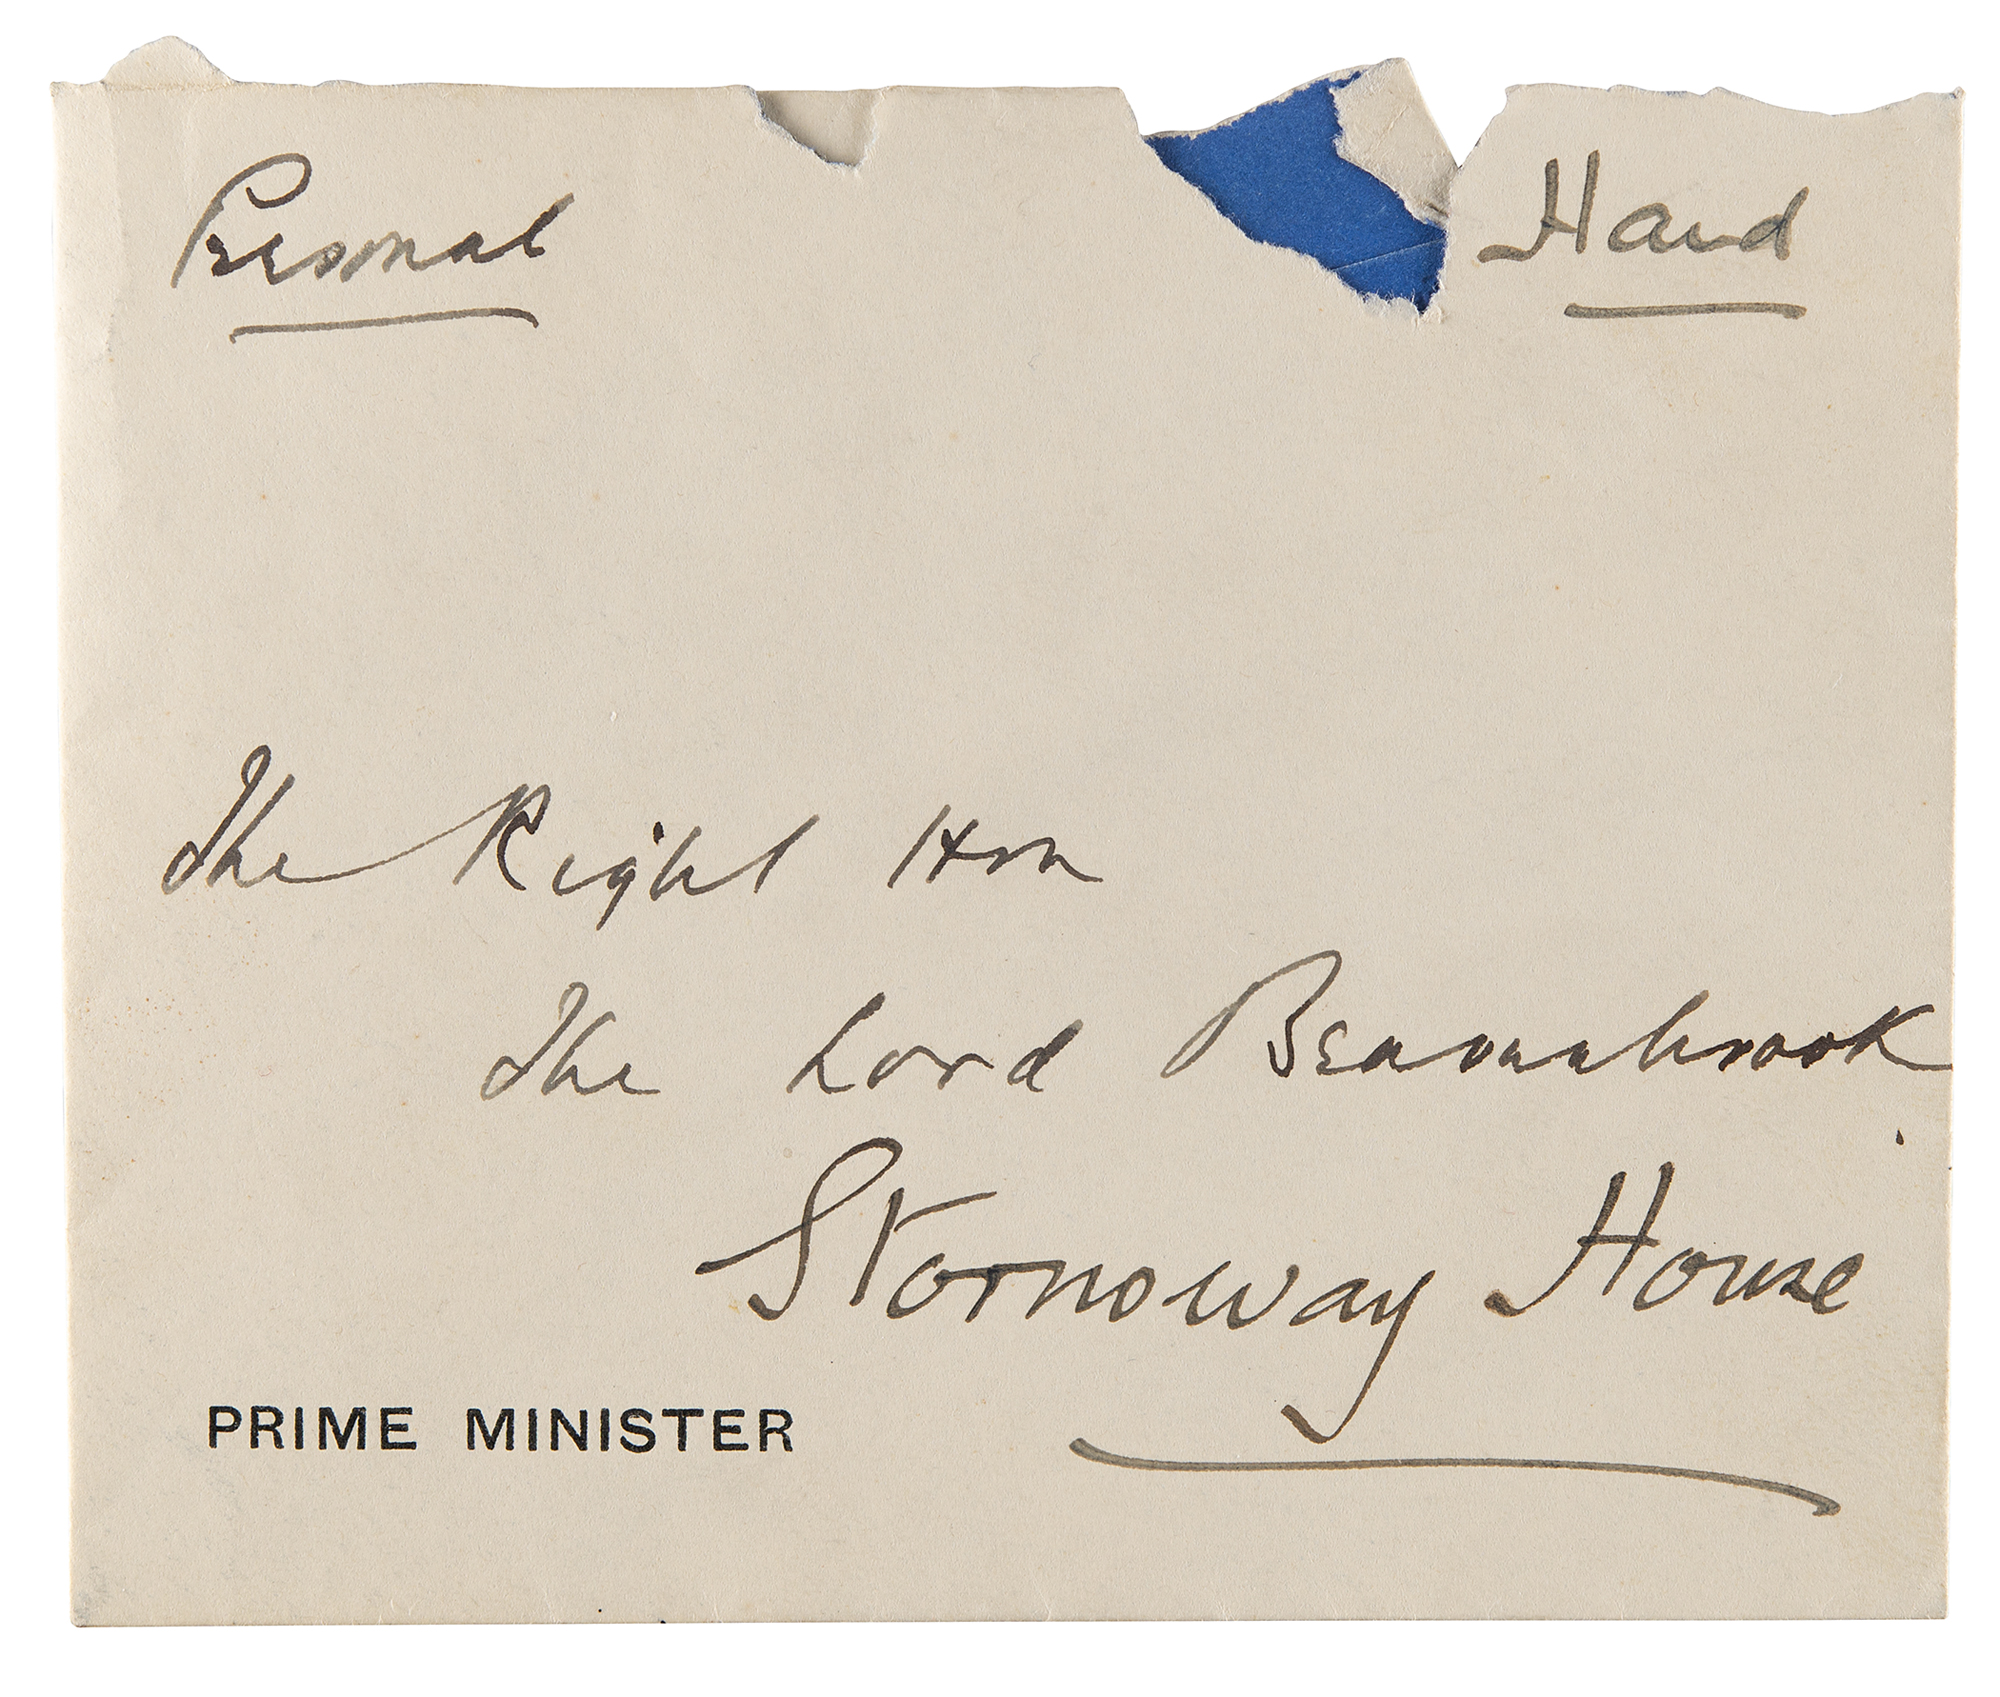 Personal Hand
The Right Hon
The Lord Beaverbrook
Stornoway House
PRIME MINISTER